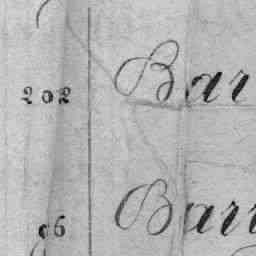 202 Bar
96 Barr